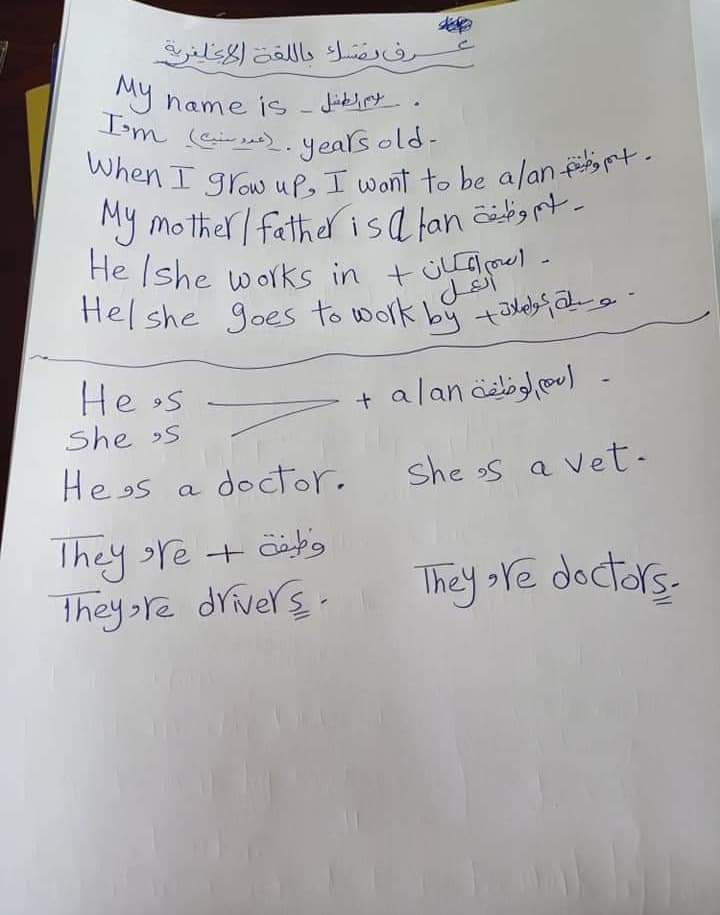 عرف نفسك باللغة الإنجليزية
My name is - اسم الطفل .
I'm (عدد سنين) . years old -
When I grow up, I want to be a/an اسم وظيفة .
My mother/father is a/an اسم وظيفة -
He/she works in + اسم المكان -
العمل
He/she goes to work by + وسيلة مواصلات -
He's
+ a/an اسم الوظيفة -
She's
He's a doctor. She's a vet.
They're + وظيفة
They're drivers. They're doctors.